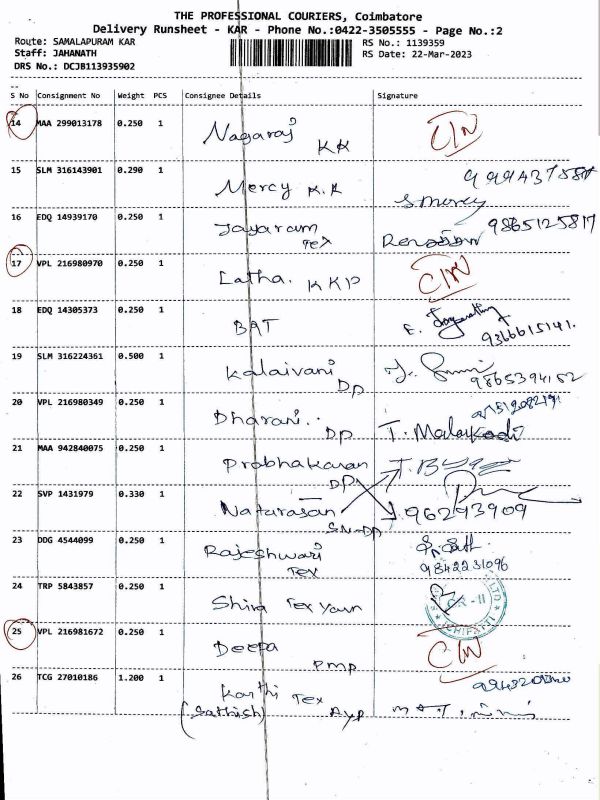 THE PROFESSIONAL COURIERS, Coimbatore
Delivery Runsheet - KAR - Phone No.:0422-3505555 - Page No.:2
Route: SAMALAPURAM KAR RS No.: 1139359
Staff: JAHANATH RS Date: 22-Mar-2023
DRS No.: DCJB113935902
S No Consignment No Weight PCS Consignee Details Signature
14 MAA 299013178 0.250 1 Nagaraj KK C/N
15 SLM 316143901 0.290 1 Mercy K.K S mercy
16 EDQ 14939170 0.250 1 Jayaram Tex 9865125817
17 VPL 216980970 0.250 1 Latha. KKP C/N
18 EDQ 14305373 0.250 1 BAT 9366615141.
19 SLM 316224361 0.500 1 Kalaivani DP 9865394152
20 VPL 216980349 0.250 1 Dharani.. DP T. Malarkodi
21 MAA 942840075 0.250 1 Prabhakaran DP
22 SVP 1431979 0.330 1 Natarasan SN-DP
23 DDG 4544099 0.250 1 Rajeshwari Tex 9842231096
24 TRP 5843857 0.250 1 Shira Tex yarn
25 VPL 216981672 0.250 1 Deepa PMP C/N
26 TCG 27010186 1.200 1 Karthi Tex
(Sathish) Ayp